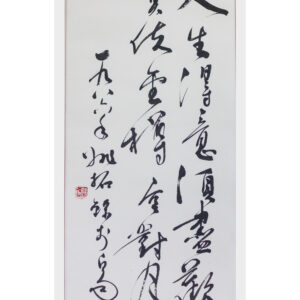 人生得意須盡歡
莫使金樽空對月
一九八六年姚拓錄於